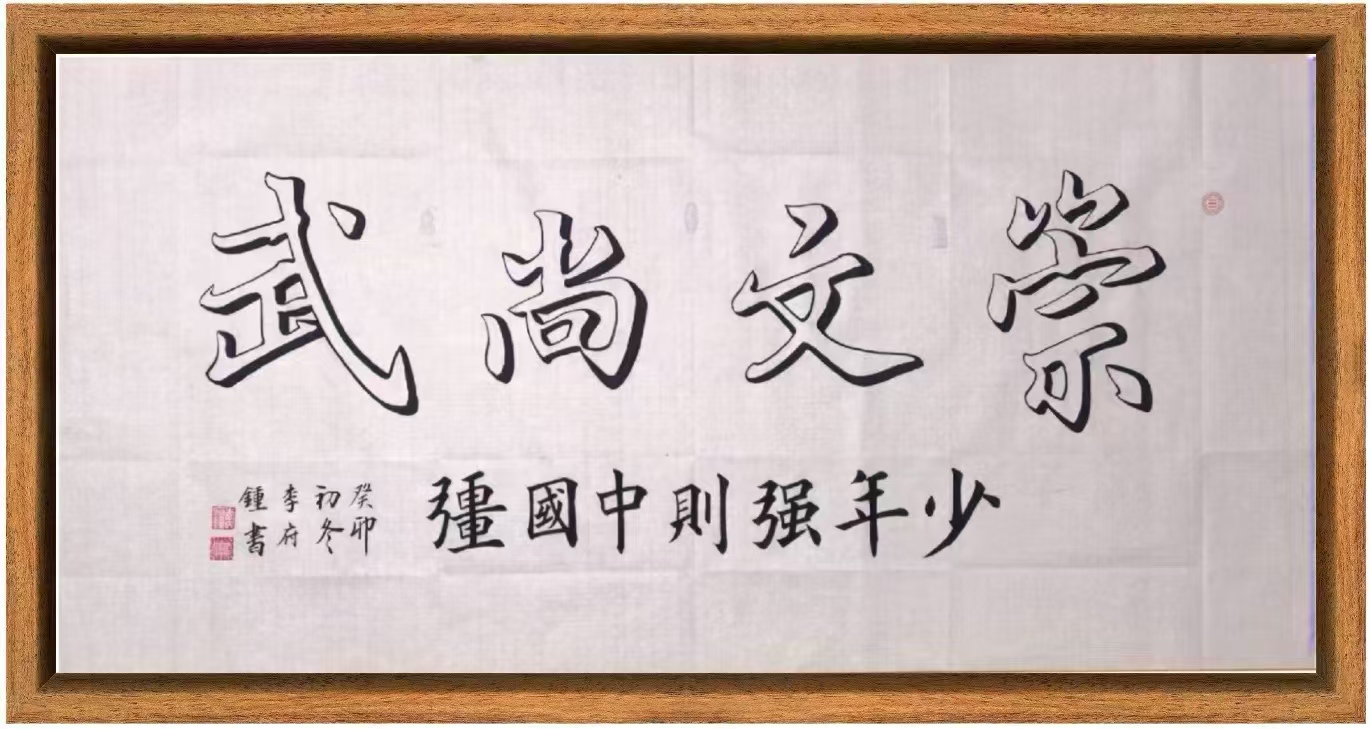 崇文尚武
少年强則中國彊
癸卯
初冬
李府
鍾書